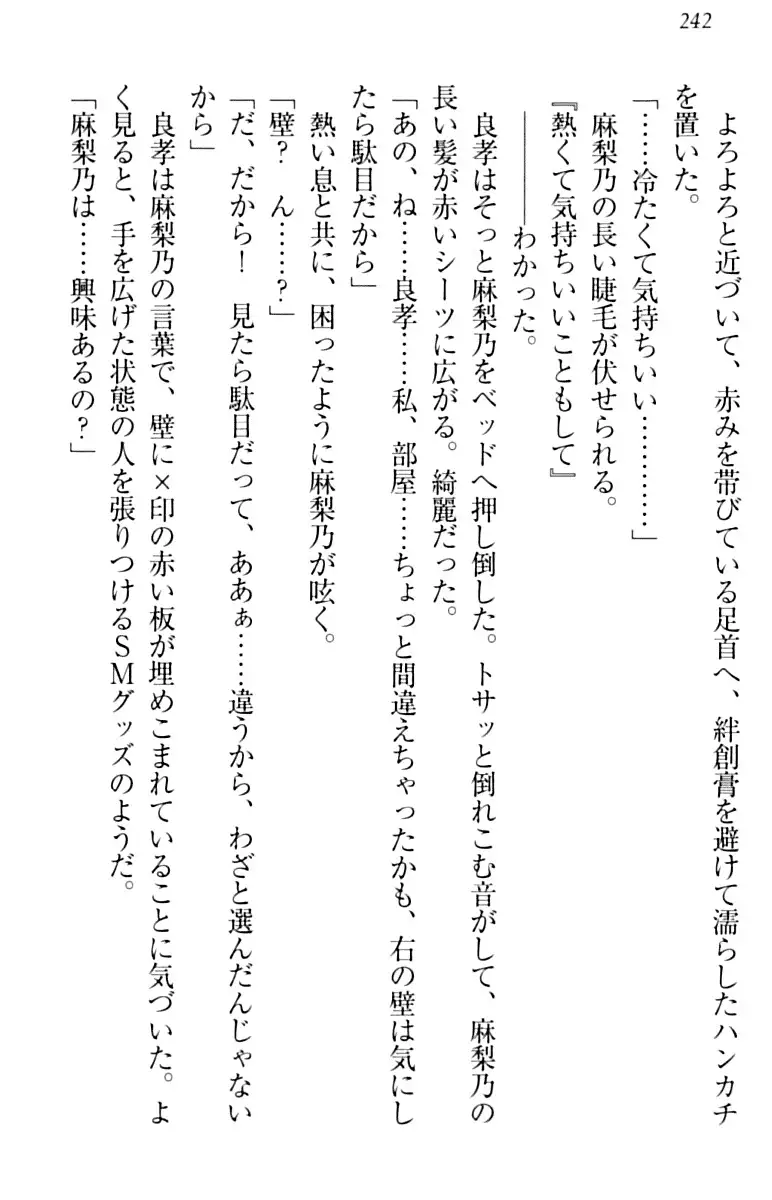 242
よろよろと近づいて、赤みを帯びている足首へ、絆創膏を避けて濡らしたハンカチ
を置いた。
「……冷たくて気持ちいい…………」
麻梨乃の長い睫毛が伏せられる。
『熱くて気持ちいいこともして』
――――わかった。
良孝はそっと麻梨乃をベッドへ押し倒した。トサッと倒れこむ音がして、麻梨乃の
長い髪が赤いシーツに広がる。綺麗だった。
「あの、ね……良孝……私、部屋……ちょっと間違えちゃったかも、右の壁は気にし
たら駄目だから」
熱い息と共に、困ったように麻梨乃が呟く。
「壁？　ん……？」
「だ、だから！　見たら駄目だって、ああぁ……違うから、わざと選んだんじゃない
から」
良孝は麻梨乃の言葉で、壁に×印の赤い板が埋めこまれていることに気づいた。よ
く見ると、手を広げた状態の人を張りつけるＳＭグッズのようだ。
「麻梨乃は……興味あるの？」